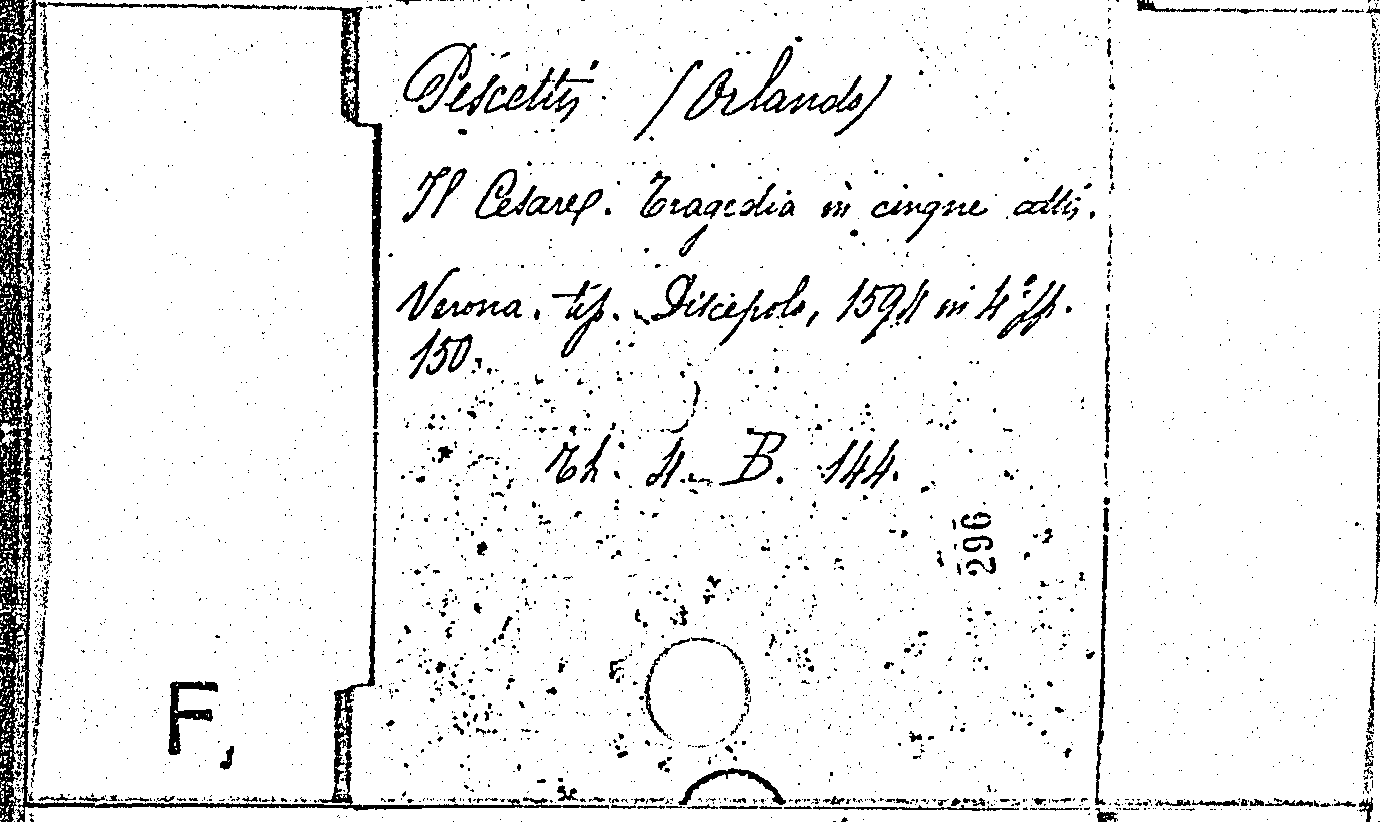 Pescetti (Orlando)
Il Cesare. Tragedia in cinque atti.
Verona. tip. Discepolo, 1594 in 4° pp.
150.
Th. 4. B. 144.
296
F,